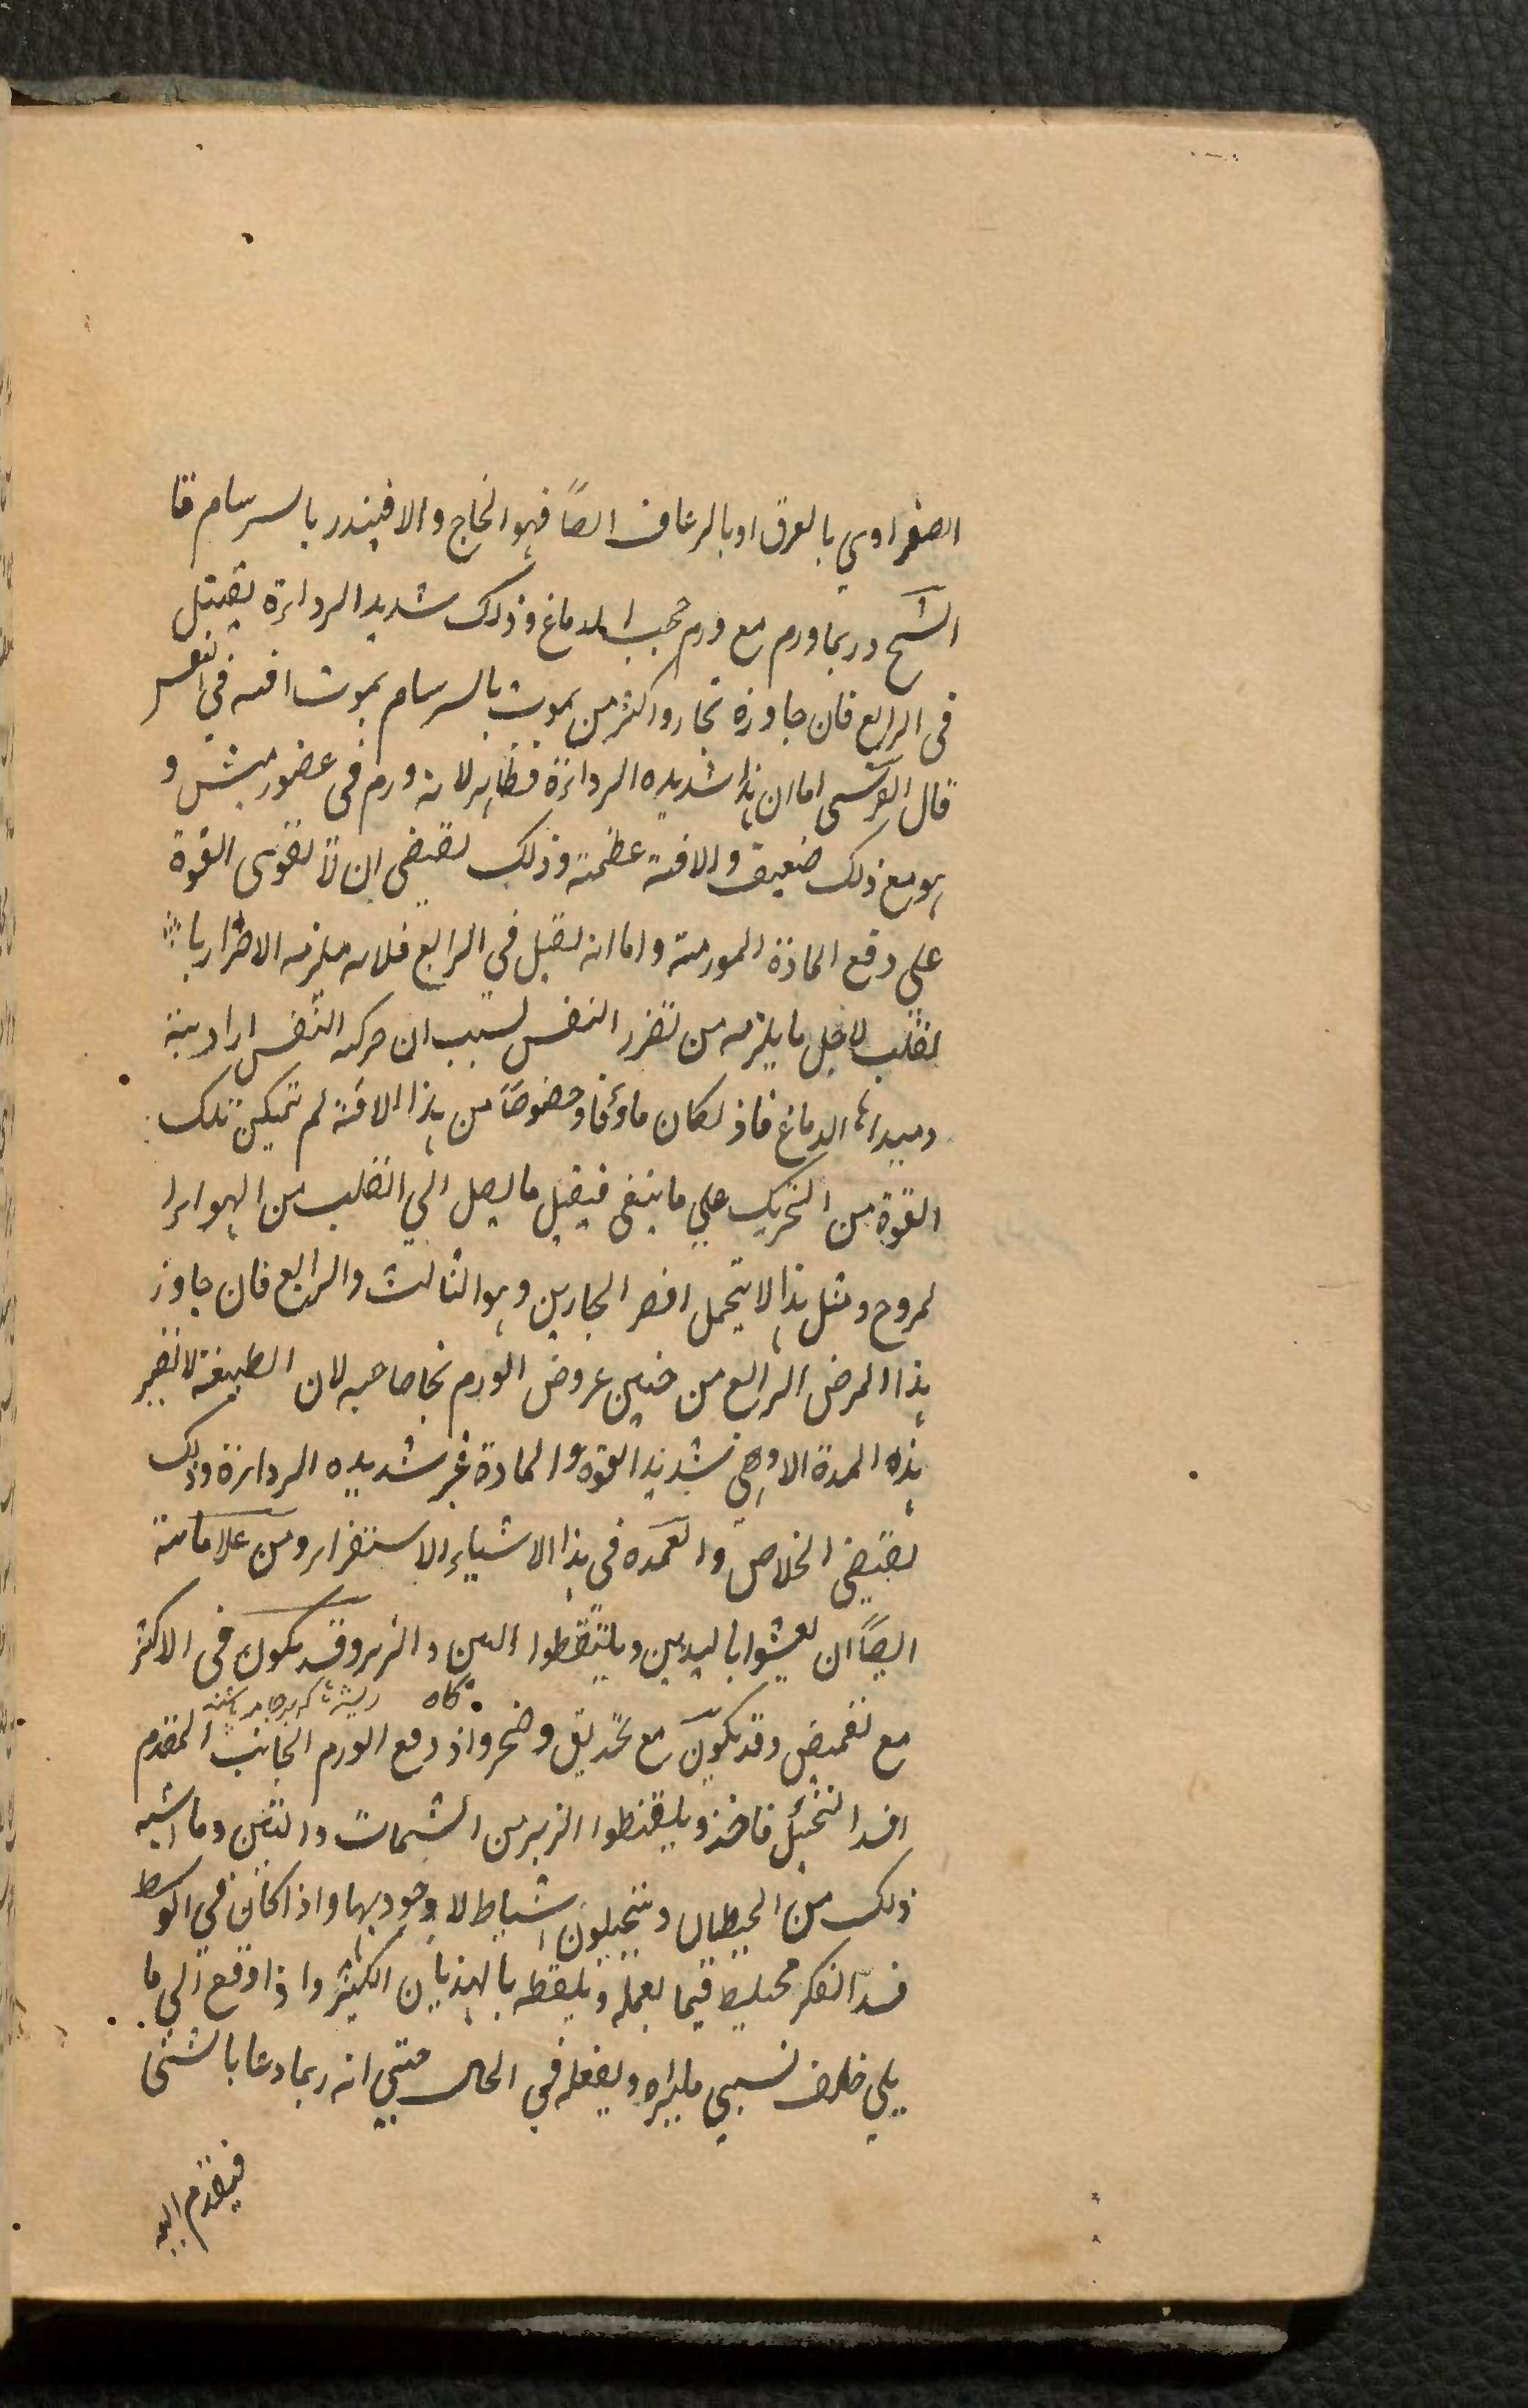 الصفراوي بالعرق او بالرعاف ايضاً فهو الخاج والا فينذر بالسرسام قا
الشيخ وربما ورم مع ورم حجب الدماغ وذلك شديد الرداءة يقتل
فى الرابع فان جاوزه نجا واكثر من يموت بالسرسام يموت افة في النفس
قال القرشى اما ان هذا شديده الرداءة فظاهر لانه ورم فى عضو رئيس و
هو مع ذلك ضعيف والافة عظيمة وذلك يقتضى ان لا تقوى القوة
على دفع المادة المورمة واما انه يقتل في الرابع فلانه يلزمه الاضرار با
لقلب لاجل ما يلزمه من تضرر النفس بسبب ان حركة التنفس ارادية
ومبداها الدماغ فاذ لكان ماؤفا وخصوصاً من هذا الافة لم تتمكن تلك
القوة من التحريك على ما ينبغى فيقل ما يصل الي القلب من الهواء ا
لروح ومثل هذا لا يتحمل اقصر البحارين وهو الثالث والرابع فان جاوز
هذا المرض الرابع من حين عروض الورم نجا صاحبه لان الطبيعة لا تصبر
هذه المدة الا وهى شديد القوة والمادة غير شديده الرداءة وذلك
يقتضى الخلاص والعمده فى هذا الاشياء الاستقراء ومن علاماته
ايضاً ان يعبثوا باليدين ويلتقطوا التبن والزبر وقد يكون فى الاكثر
كاه ريشه كه برجامه باشد
مع تغميض وقد يكون مع تحديق وضجر واذ دفع الورم الجانب المقدم
افسد التخيل فاخذو يلقطوا الزبر من الثياب والتبن وما اشبه
ذلك من الحيطان ويتخيلون اشياء لا وجود لها واذا كان في الوسط
فسد الفكر فيما يعمله ويلقطه بالهذيان الكثير واذا وقع الى ما
يلي خلف نسيي مايراه ويفعله في الحال حتي انه ربما دعا بالشئ
فيقدم اليه